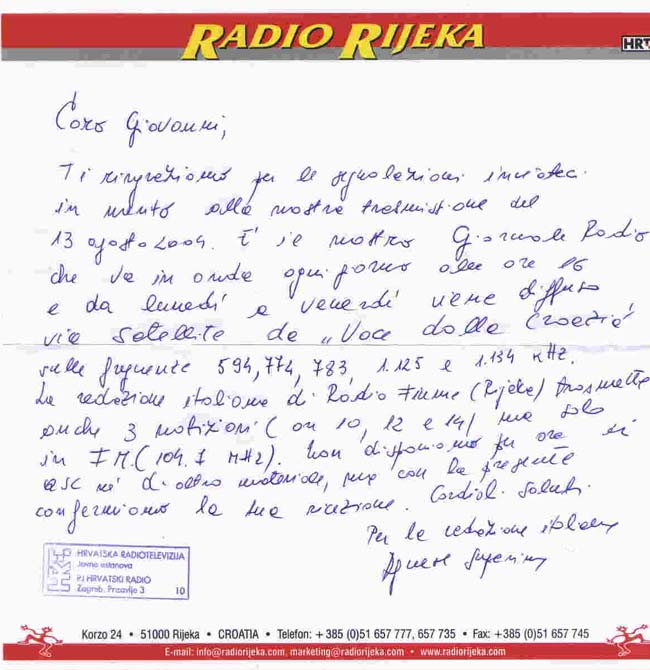 RADIO RIJEKA
HRT
Caro Giovanni,
Ti ringraziamo per le segnalazioni inviateci
in merito alla nostra trasmissione del
13 agosto 2004. E' il nostro Giornale Radio
che va in onda ogni giorno alle ore 16
e da lunedì a venerdì viene diffuso
via satellite da „Voce della Croazia"
sulle frequenze 594, 774, 783, 1.125 e 1.134 kHz.
La redazione italiana di Radio Fiume (Rijeka) trasmette
anche 3 notiziari (ore 10, 12 e 14) ma solo
in FM (104.7 MHz). Non disponiamo per ora di
QSL né di altro materiale, ma con la presente
confermiamo la tua ricezione. Cordiali saluti.
Per la redazione italiana
HRVATSKA RADIOTELEVIZIJA
Javna ustanova
PJ HRVATSKI RADIO
Zagreb, Prisavlje 3 10
Korzo 24 • 51000 Rijeka • CROATIA • Telefon: +385 (0)51 657 777, 657 735 • Fax: +385 (0)51 657 745
E-mail: info@radiorijeka.com, marketing@radiorijeka.com • www.radiorijeka.com